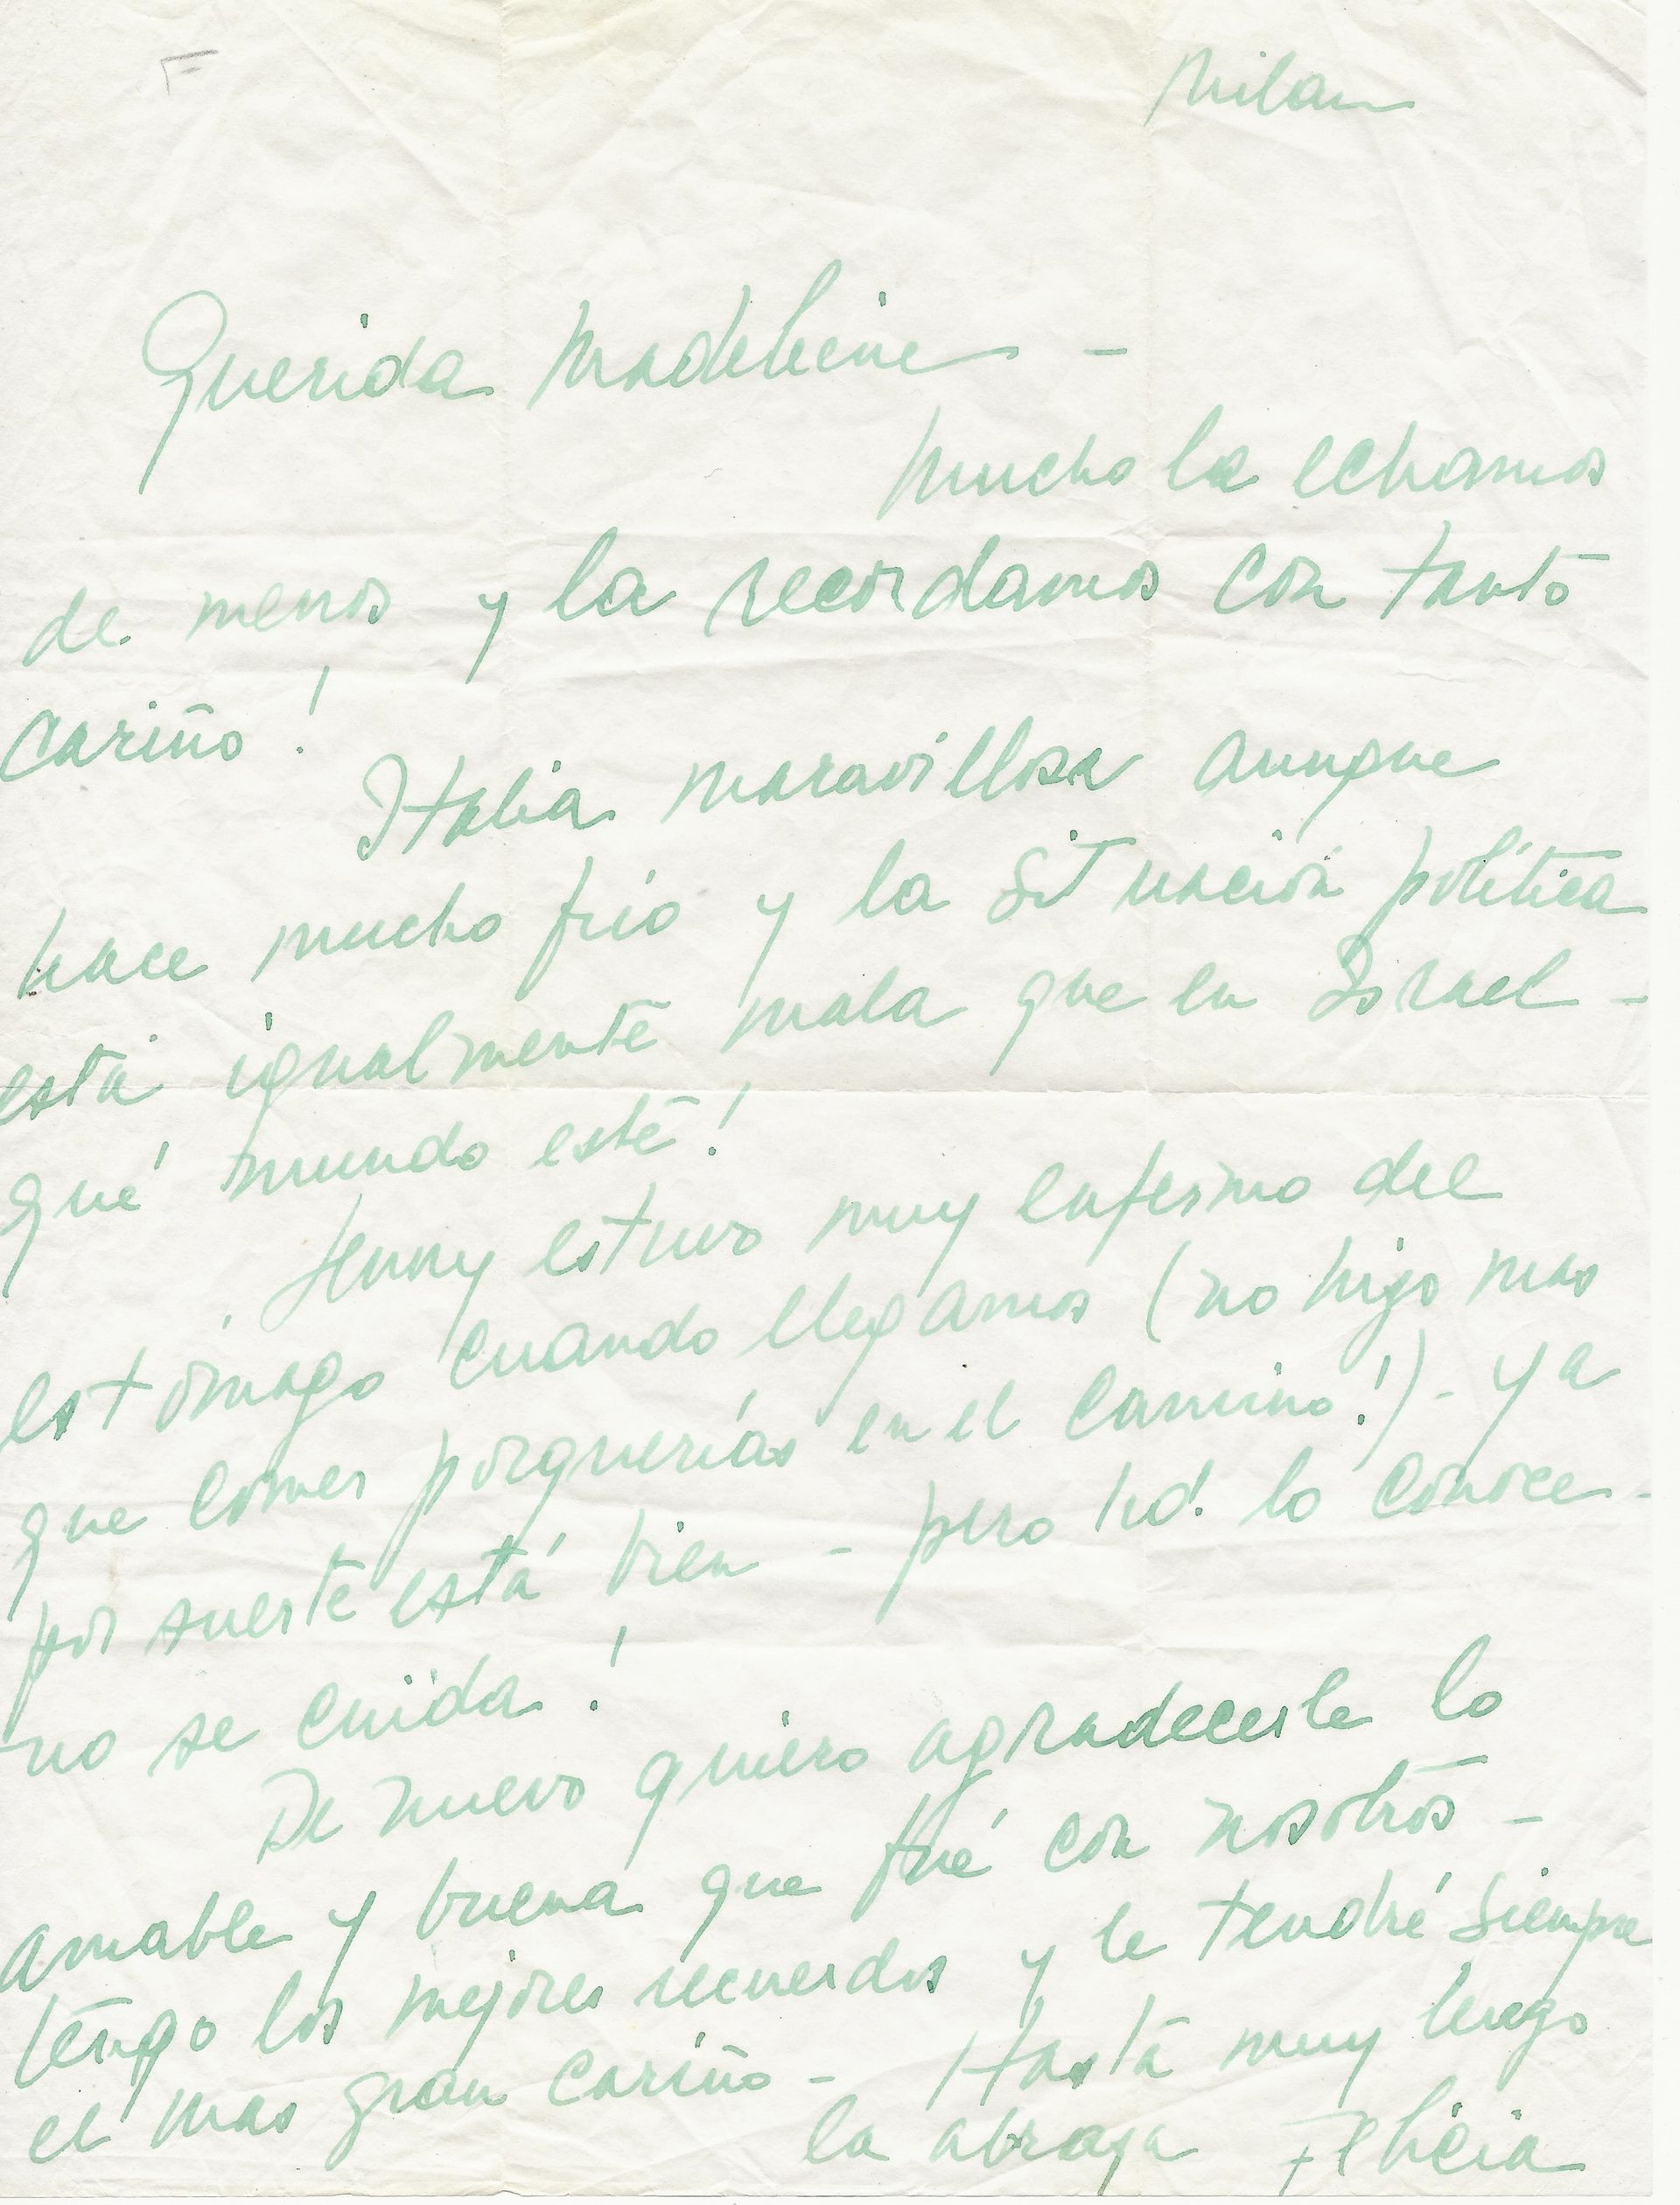 F
Milan
Querida Madeleine -
Mucho la echamos
de menos y la recordamos con tanto
cariño!
Italia maravillosa aunque
hace mucho frío y la situación política
está igualmente mala que en Israel -
qué mundo este!
Lenny estuvo muy enfermo del
estómago cuando llegamos (no hizo mas
que comer porquerías en el camino!) - ya
por suerte está bien - pero Ud. lo conoce -
no se cuida!
De nuevo quiero agradecerle lo
amable y buena que fué con nosotros -
tengo los mejores recuerdos y le tendré siempre
el mas gran cariño - Hasta muy luego
la abraza Felicia